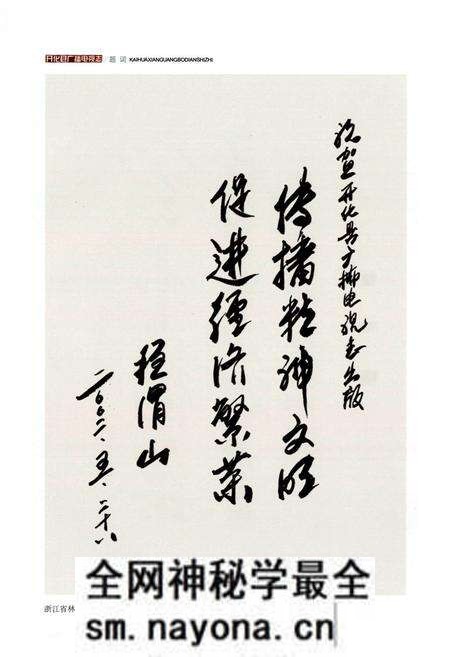 开化县广播电视志 题词 KAIHUAXIANGUANGBODIANSHIZHI
祝贺开化县广播电视志出版
传播精神文明
促进经济繁荣
程渭山
二〇〇二.五.二十八
浙江省林
全网神秘学最全
sm.nayona.cn